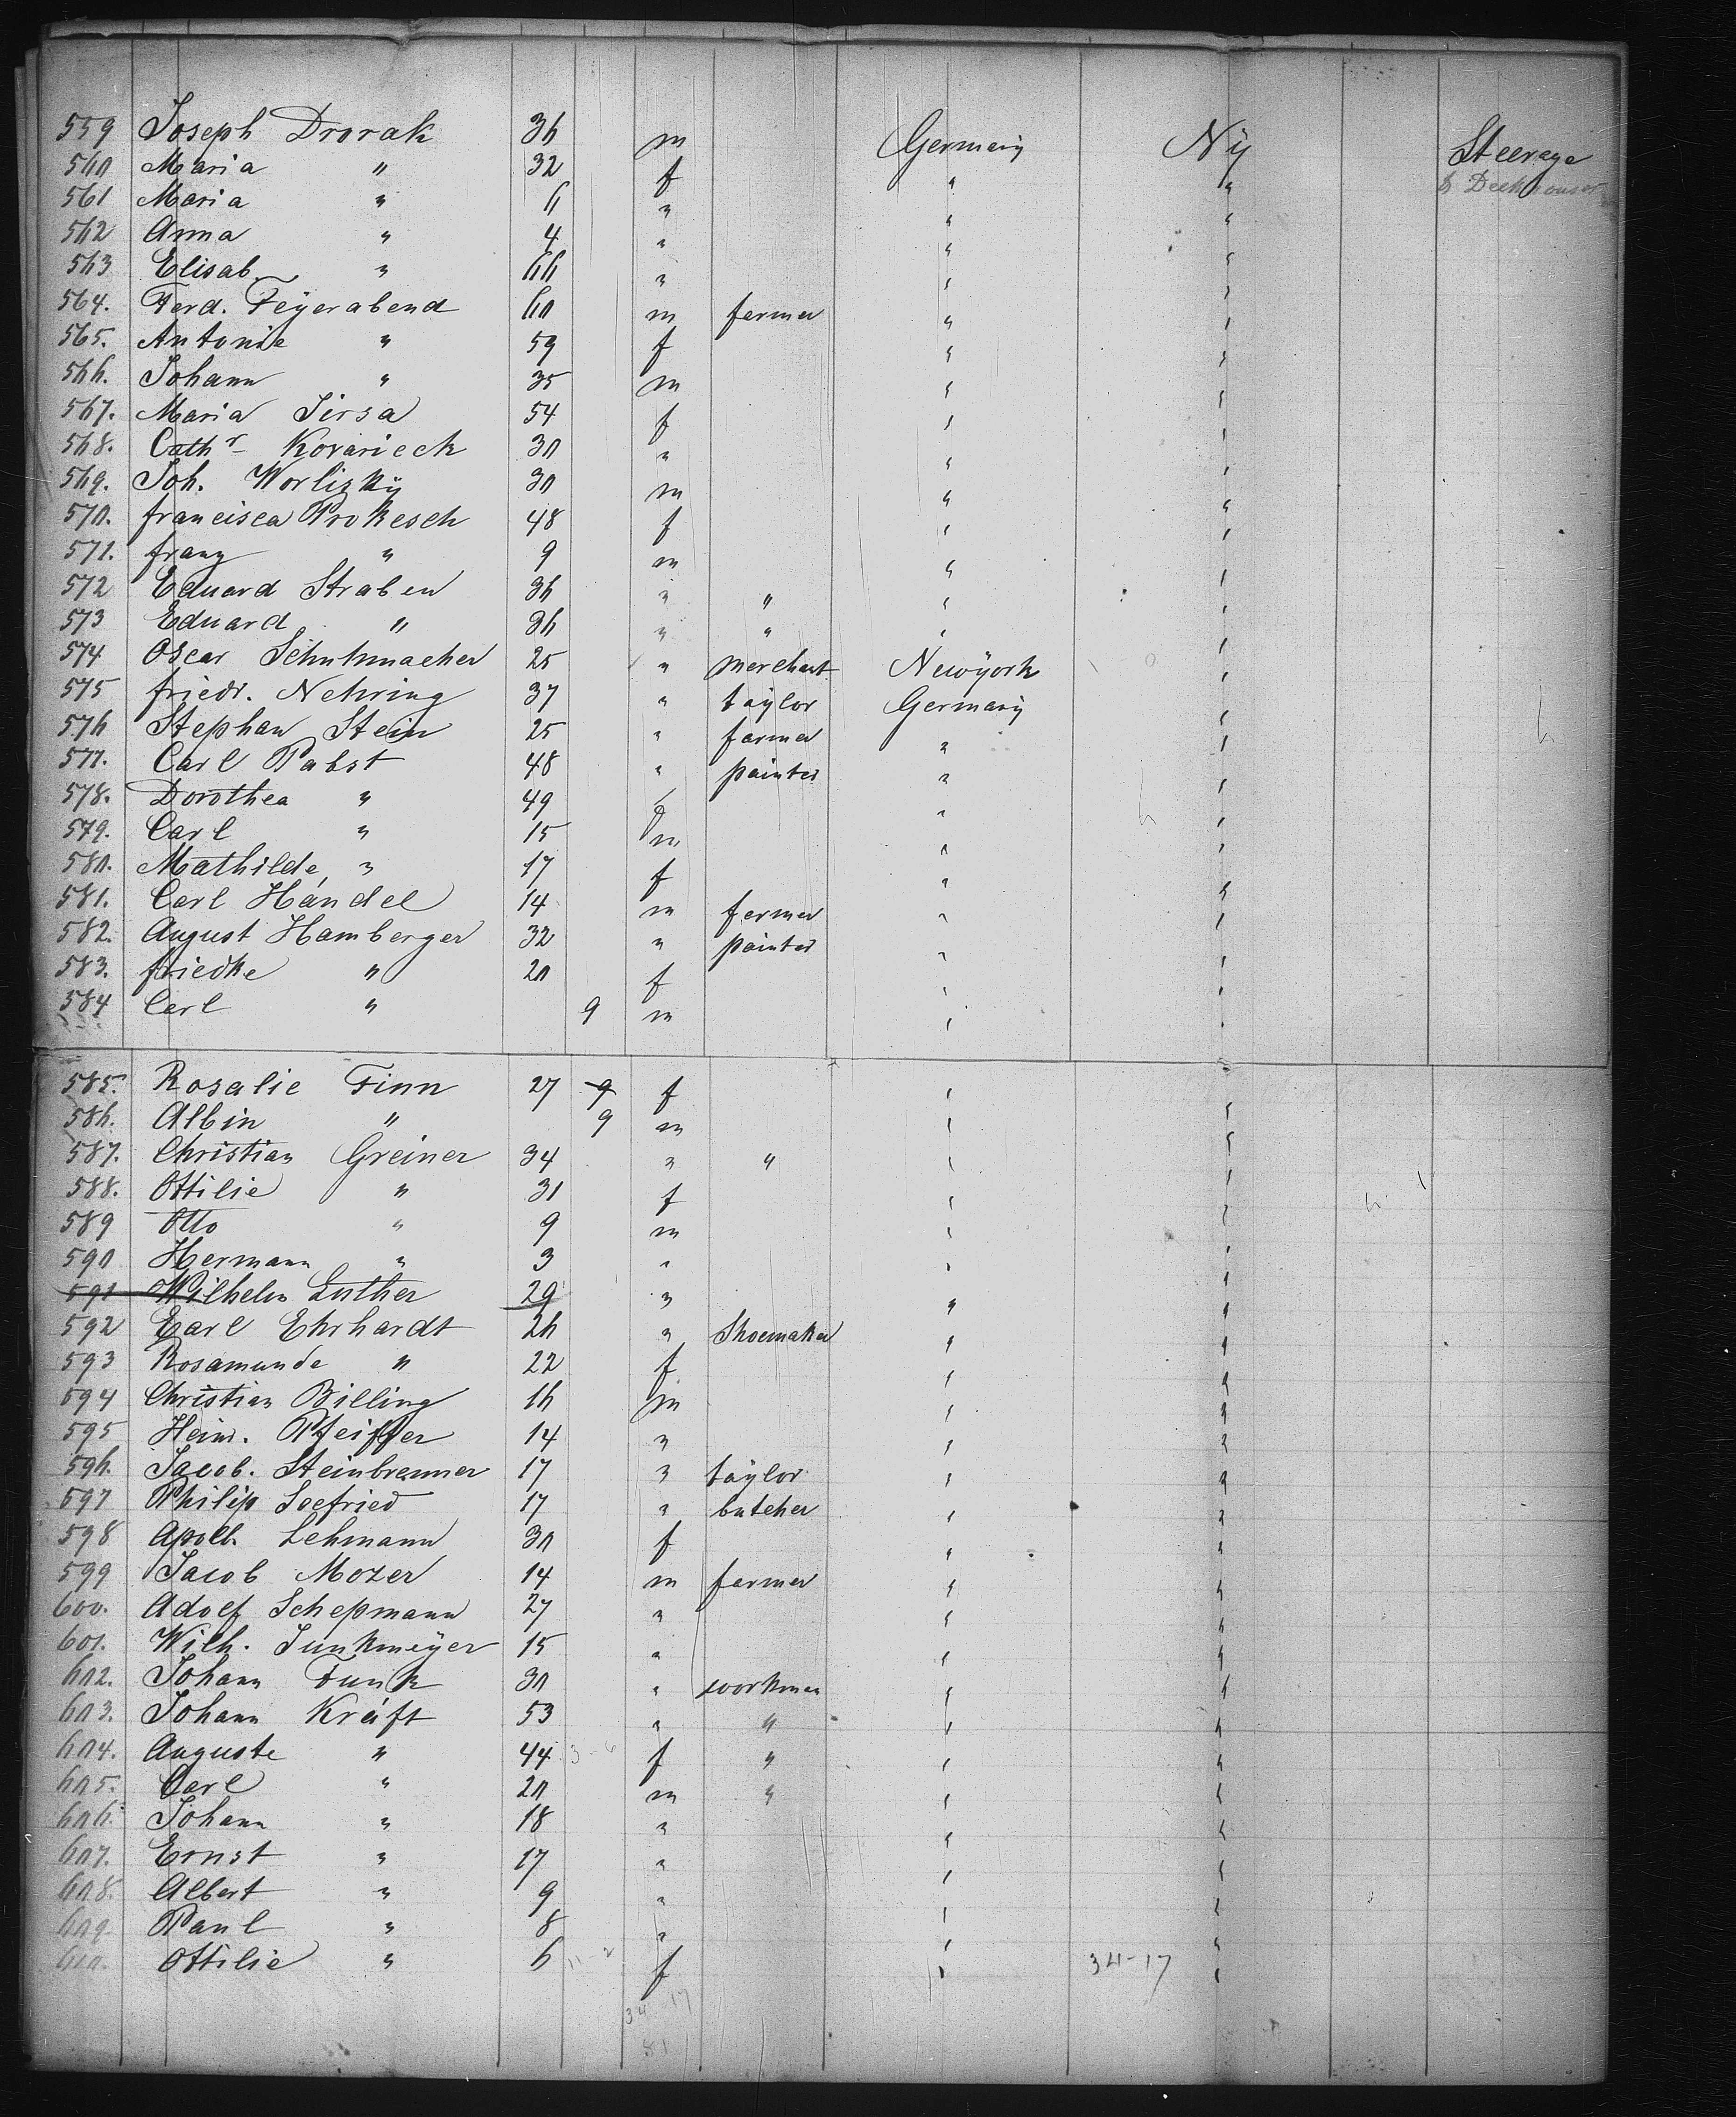 559 Joseph Dvorak 36 m Germany Ny Steerage
560 Maria " 32 f " " & Deckhouses
561 Maria " 6 " " "
562 Anna " 4 " " "
563 Elisab. " 66 " " "
564. Ferd. Feyerabend 60 m farmer " "
565. Antonie " 59 f " "
566. Johann " 35 m " "
567. Maria Jirsa 54 f " "
568. Cathr Kovarieck 30 " " "
569. Joh. Worlizky 30 m " "
570. francisca Prokesch 48 f " "
571. franz " 9 m " "
572 Eduard Straben 36 " " " "
573 Eduard " 36 " " " "
574 Oscar Schuhmacher 25 " merchant Newyork "
575 friedr. Nehring 37 " taylor Germany "
576 Stephan Stein 25 " farmer " "
577. Carl Pabst 48 " painter " "
578. Dorothea " 49 f " "
579. Carl " 15 m " "
580. Mathilde " 17 f " "
581. Carl Handel 14 m farmer " "
582. August Hamberger 32 " painter " "
583. friedke " 20 f " "
584 Carl " 9 m " "
585. Rosalie Finn 27 9 f " "
586. Albin " 9 m " "
587. Christian Greiner 34 " " " "
588. Ottilie " 31 f " "
589 Otto " 9 m " "
590 Hermann " 3 " " "
591 Wilhelm Luther 29 " " "
592 Carl Ehrhardt 26 " Shoemaker " "
593 Rosamunde " 22 f " "
594 Christian Billing 16 m " "
595 Heinr. Pfeiffer 14 " " "
596. Jacob. Steinbrenner 17 " taylor " "
597 Philip Seefried 17 " butcher " "
598 Apoll. Lehmann 30 f " "
599 Jacob Mozer 14 m farmer " "
600. Adolf Schepmann 27 " " "
601. Wilh. Junkmeyer 15 " " "
602. Johann Funk 30 " workman " "
603. Johann Kraft 53 " " " "
604. Auguste " 44 3-6 f " " "
605. Carl " 20 m " " "
606. Johann " 18 " " "
607. Ernst " 17 " " "
608. Albert " 9 " " "
609. Paul " 8 " " "
610. Ottilie " 6 11-2 f " 34-17 "
34 17
81